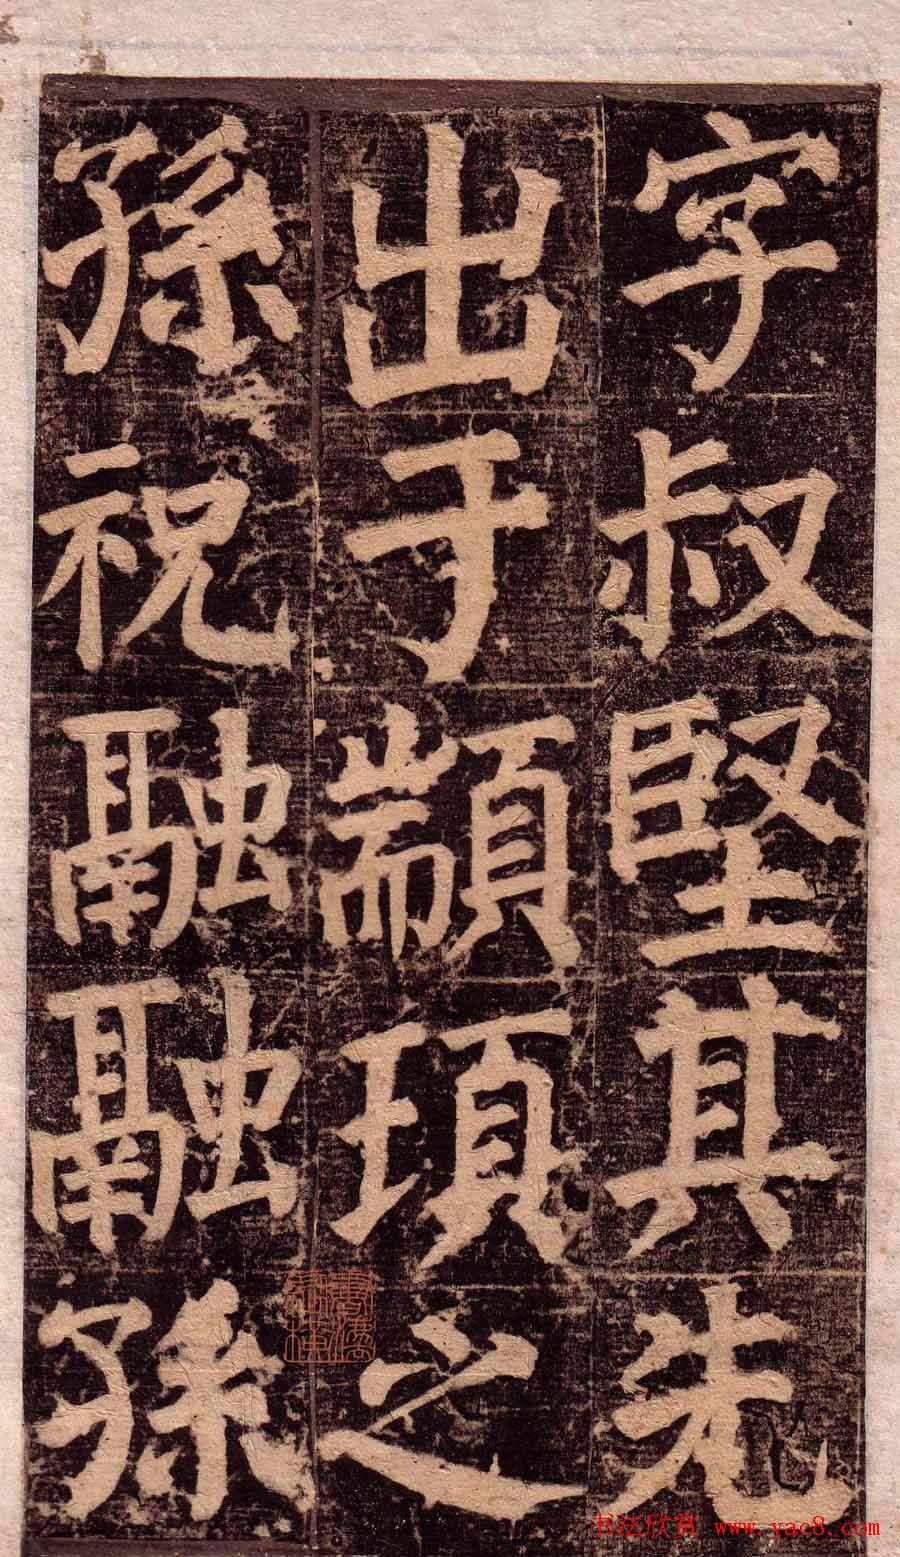 字叔堅其先
出于顓頊之
孫祝融融孫
书法欣赏 www.yac8.com